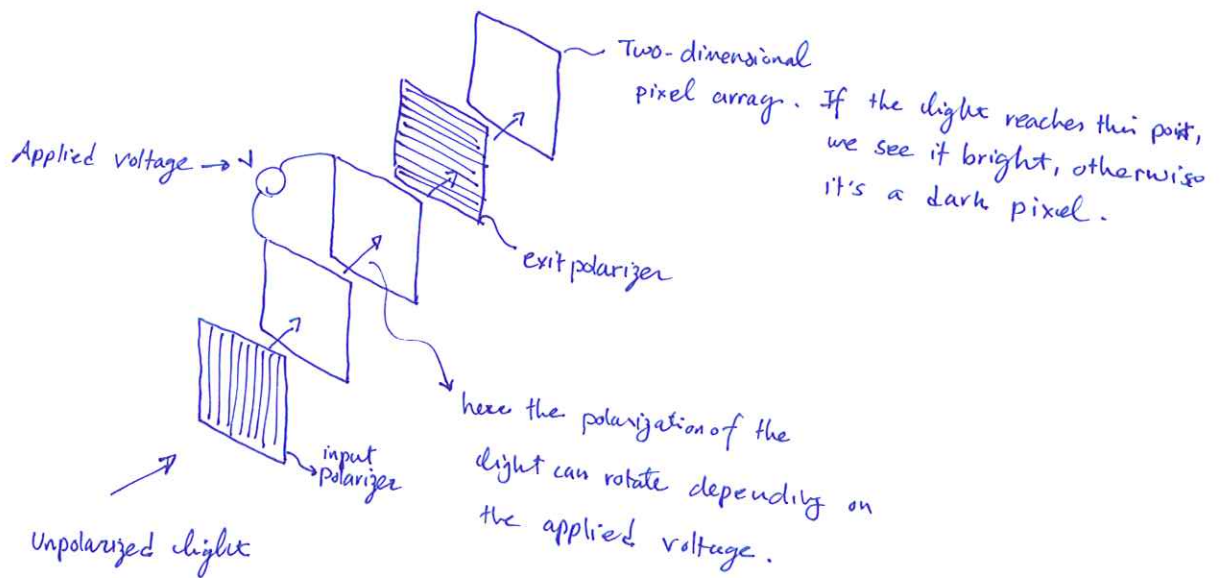 Two-dimensional
pixel array. If the light reaches this point,
we see it bright, otherwise
it's a dark pixel.
Applied voltage → V
exit polarizer
here the polarization of the
light can rotate depending on
the applied voltage.
input
polarizer
Unpolarized light